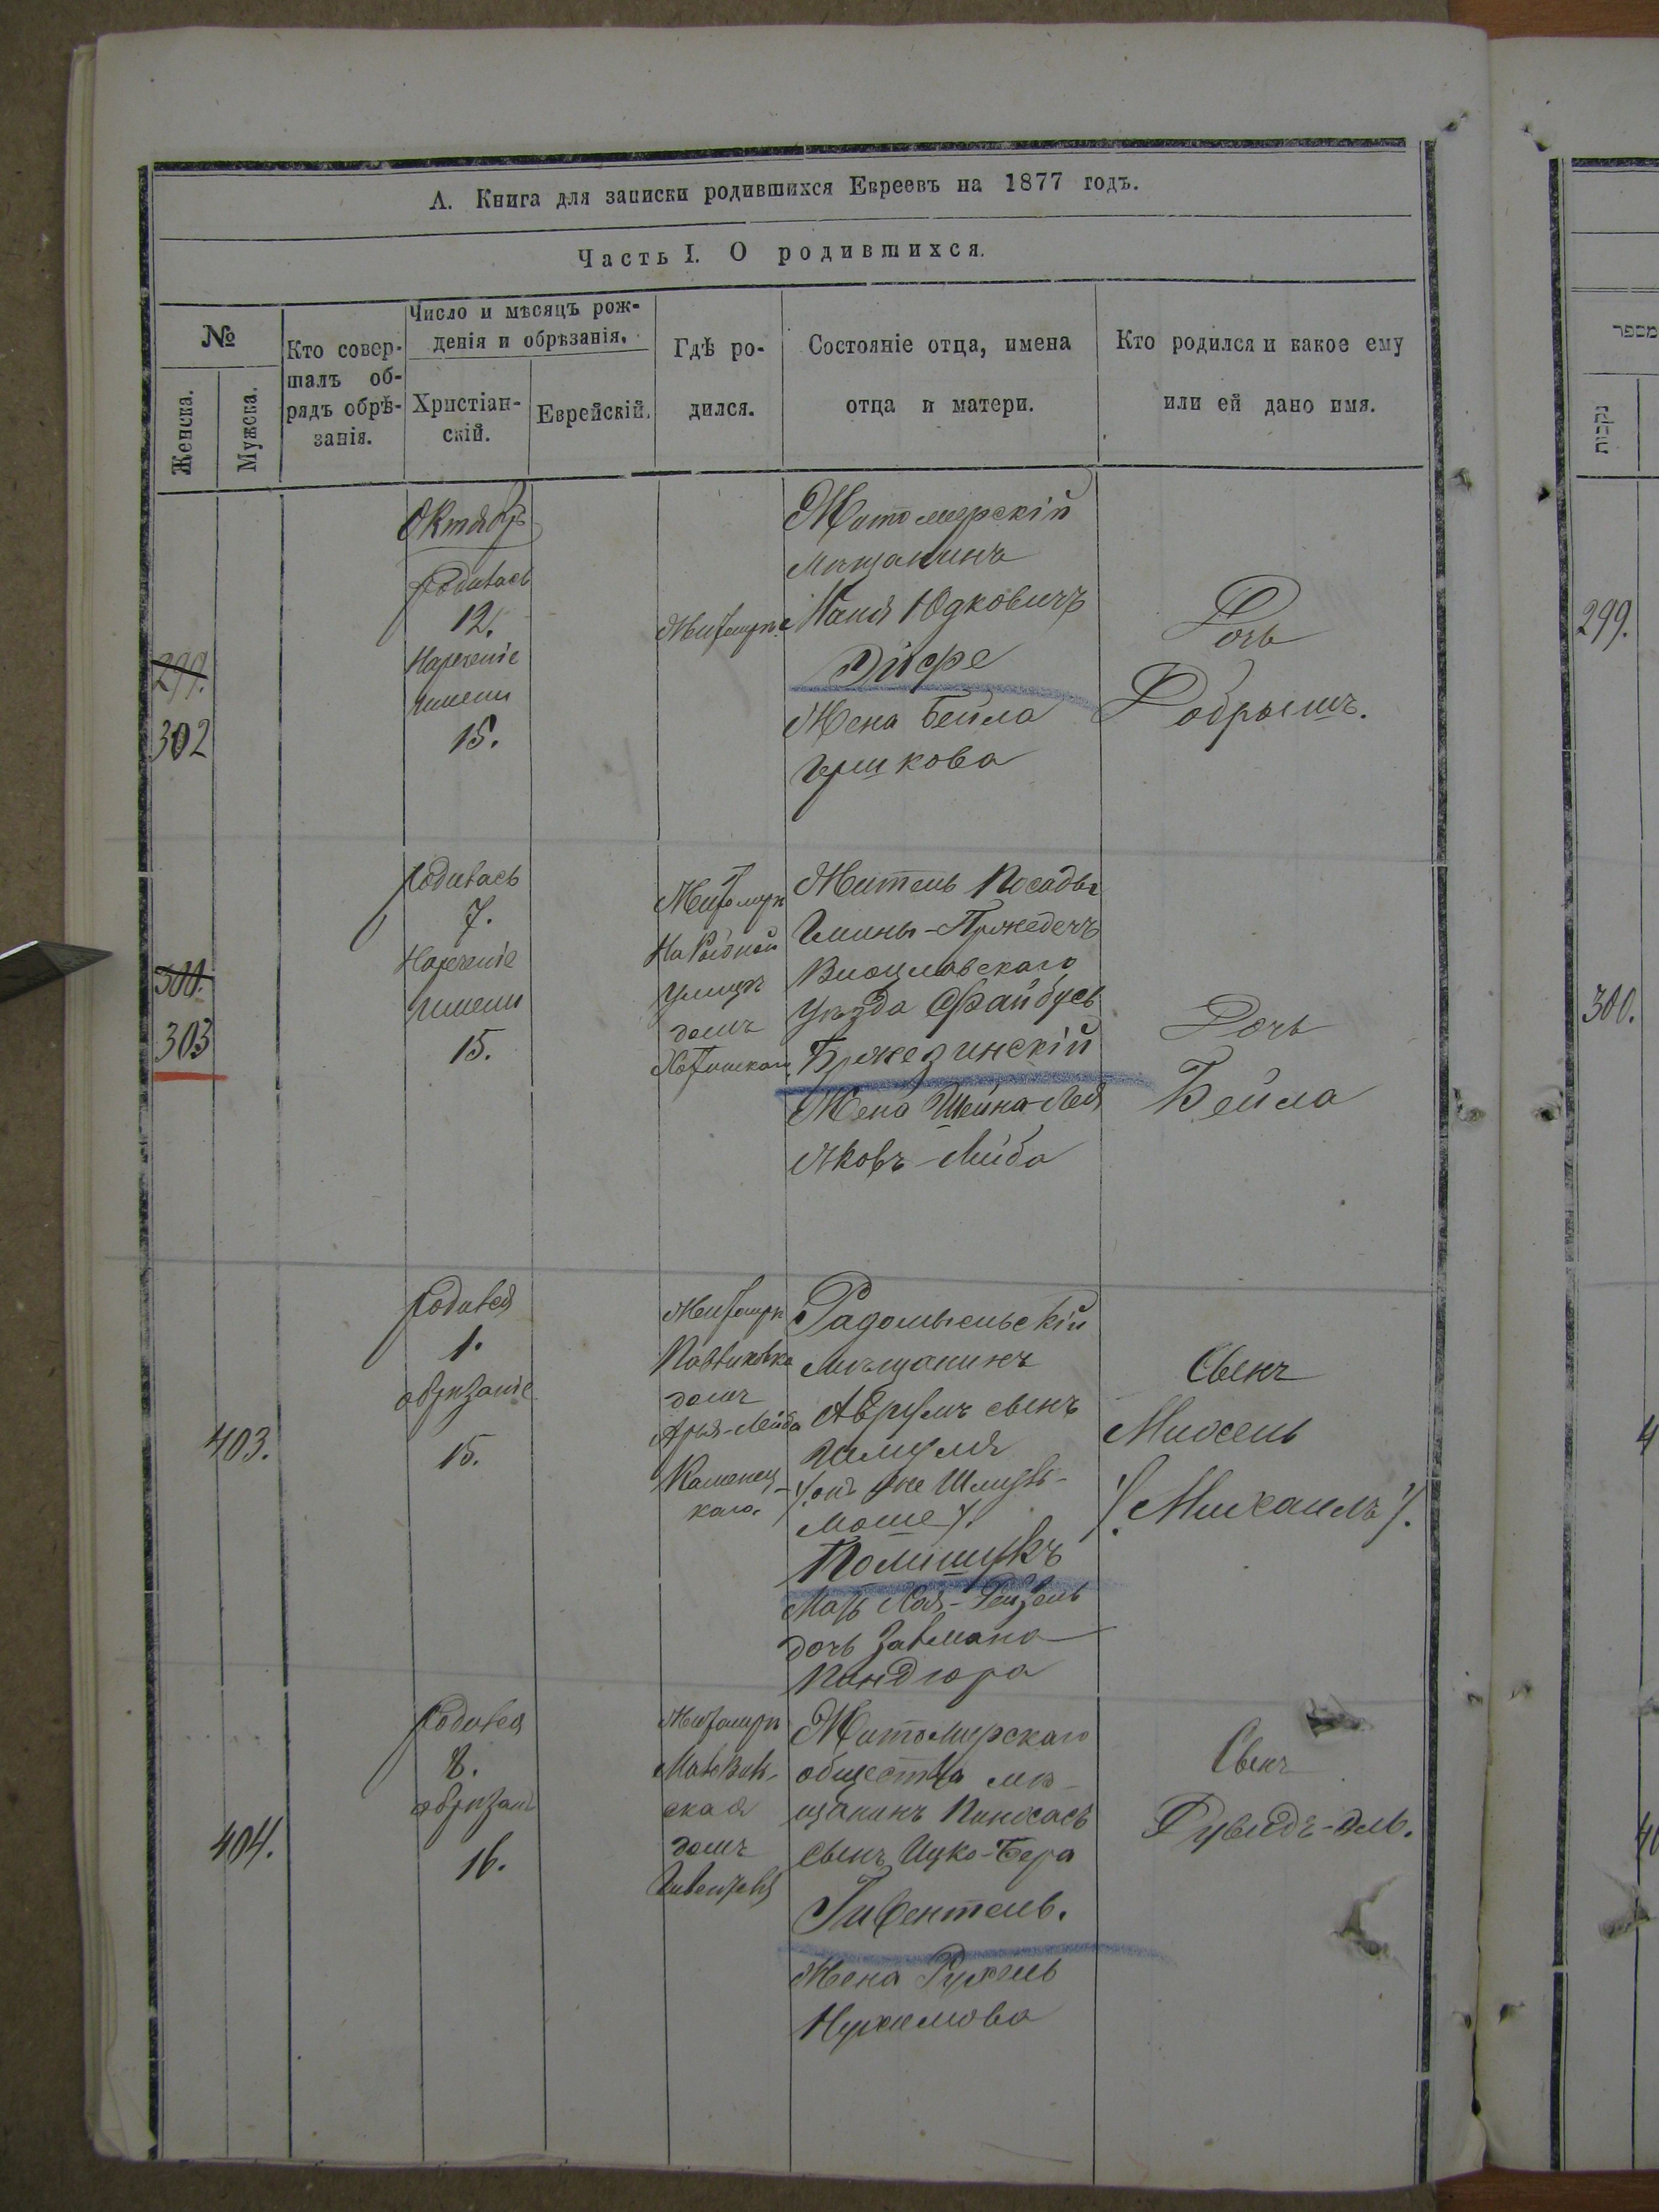 А. Книга для записки родившихся Евреевъ на 1877 годъ.
Часть I. О родившихся.
№
Женска.
Мужска.
Кто совер-
шалъ об-
рядъ обрѣ-
занія.
Число и мѣсяцъ рож-
денія и обрѣзанія.
Христіан-
скій.
Еврейскій.
Гдѣ ро-
дился.
Состояніе отца, имена
отца и матери.
Кто родился и какое ему
или ей дано имя.
299.
302
Октябрь
Родилась
12.
Нареченіе
имени
15.
Житомирѣ
Житомирскій
мѣщанинъ
Юдковичъ
Жена Бейла
Гершкова
Дочь
Добрышъ.
300.
303
Родилась
7.
Нареченіе
имени
15.
Житомирѣ
На Рыбной
улицѣ
домъ
Житель Посады
Гмины-Пржедечъ
Влоцлавскаго
уѣзда Файбусь
Бржезинскій
Жена Шейна-Лея
Яковъ-Лейба
Дочь
Бейла
403.
Родился
1.
обрѣзаніе
15.
Житомирѣ
Павликовка
домъ
Арья-Лейба
Каменец-
каго.
Радомысльскій
мѣщанинъ
Аврумъ сынъ
Шмуля
/. онъ же Шмуль-
Моше /.
Полищукъ
Мать Хая-Рейзель
дочь Залмана
Пиндюра
Сынъ
Михель
/. Михаилъ /.
404.
Родился
8.
обрѣзаніе
16.
Житомирѣ
Мало Вил-
ская
домъ
Гивентеля
Житомирскаго
общества мѣ-
щанинъ Пинхасъ
сынъ Ицко-Бера
Гивентель.
Жена Рухель
Нухимова
Сынъ
Рувидъ-Эль.
מספר
נקבות
299.
300.
4
40